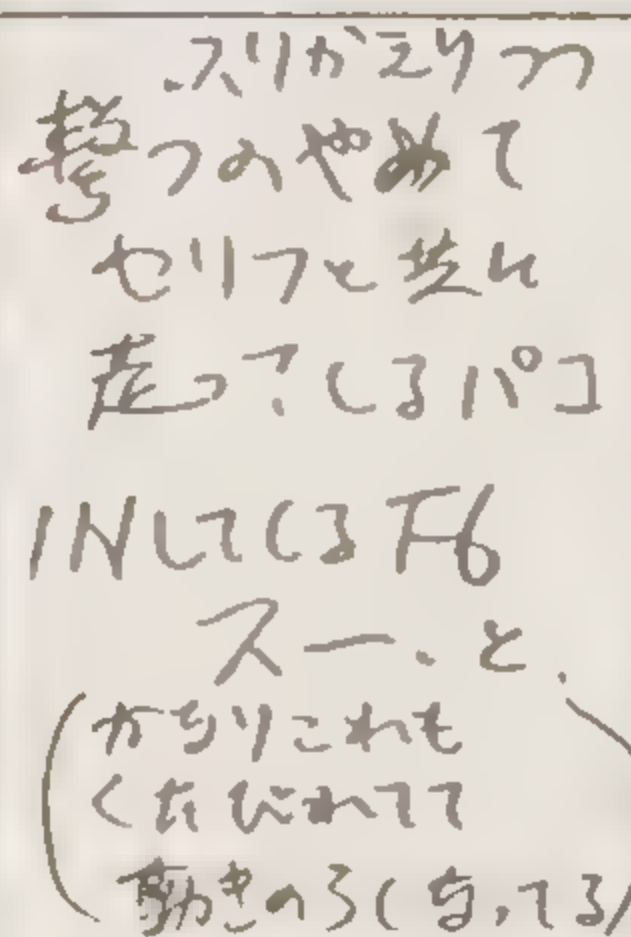 .スリかえりつつ
撃つのやめて
セリフと共に
走ってくるパコ
INしてくるF6
スー、と.
(かなりこれも
くたびれてて
動きのろくなってる)